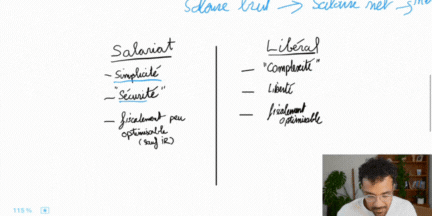 Salaire brut → Salaire net →
Salariat
- Simplicité
- "Sécurité"
- fiscalement peu
optimisable
(sauf IR)
Libéral
- "Complexité"
- Liberté
- fiscalement
optimisable
115 %